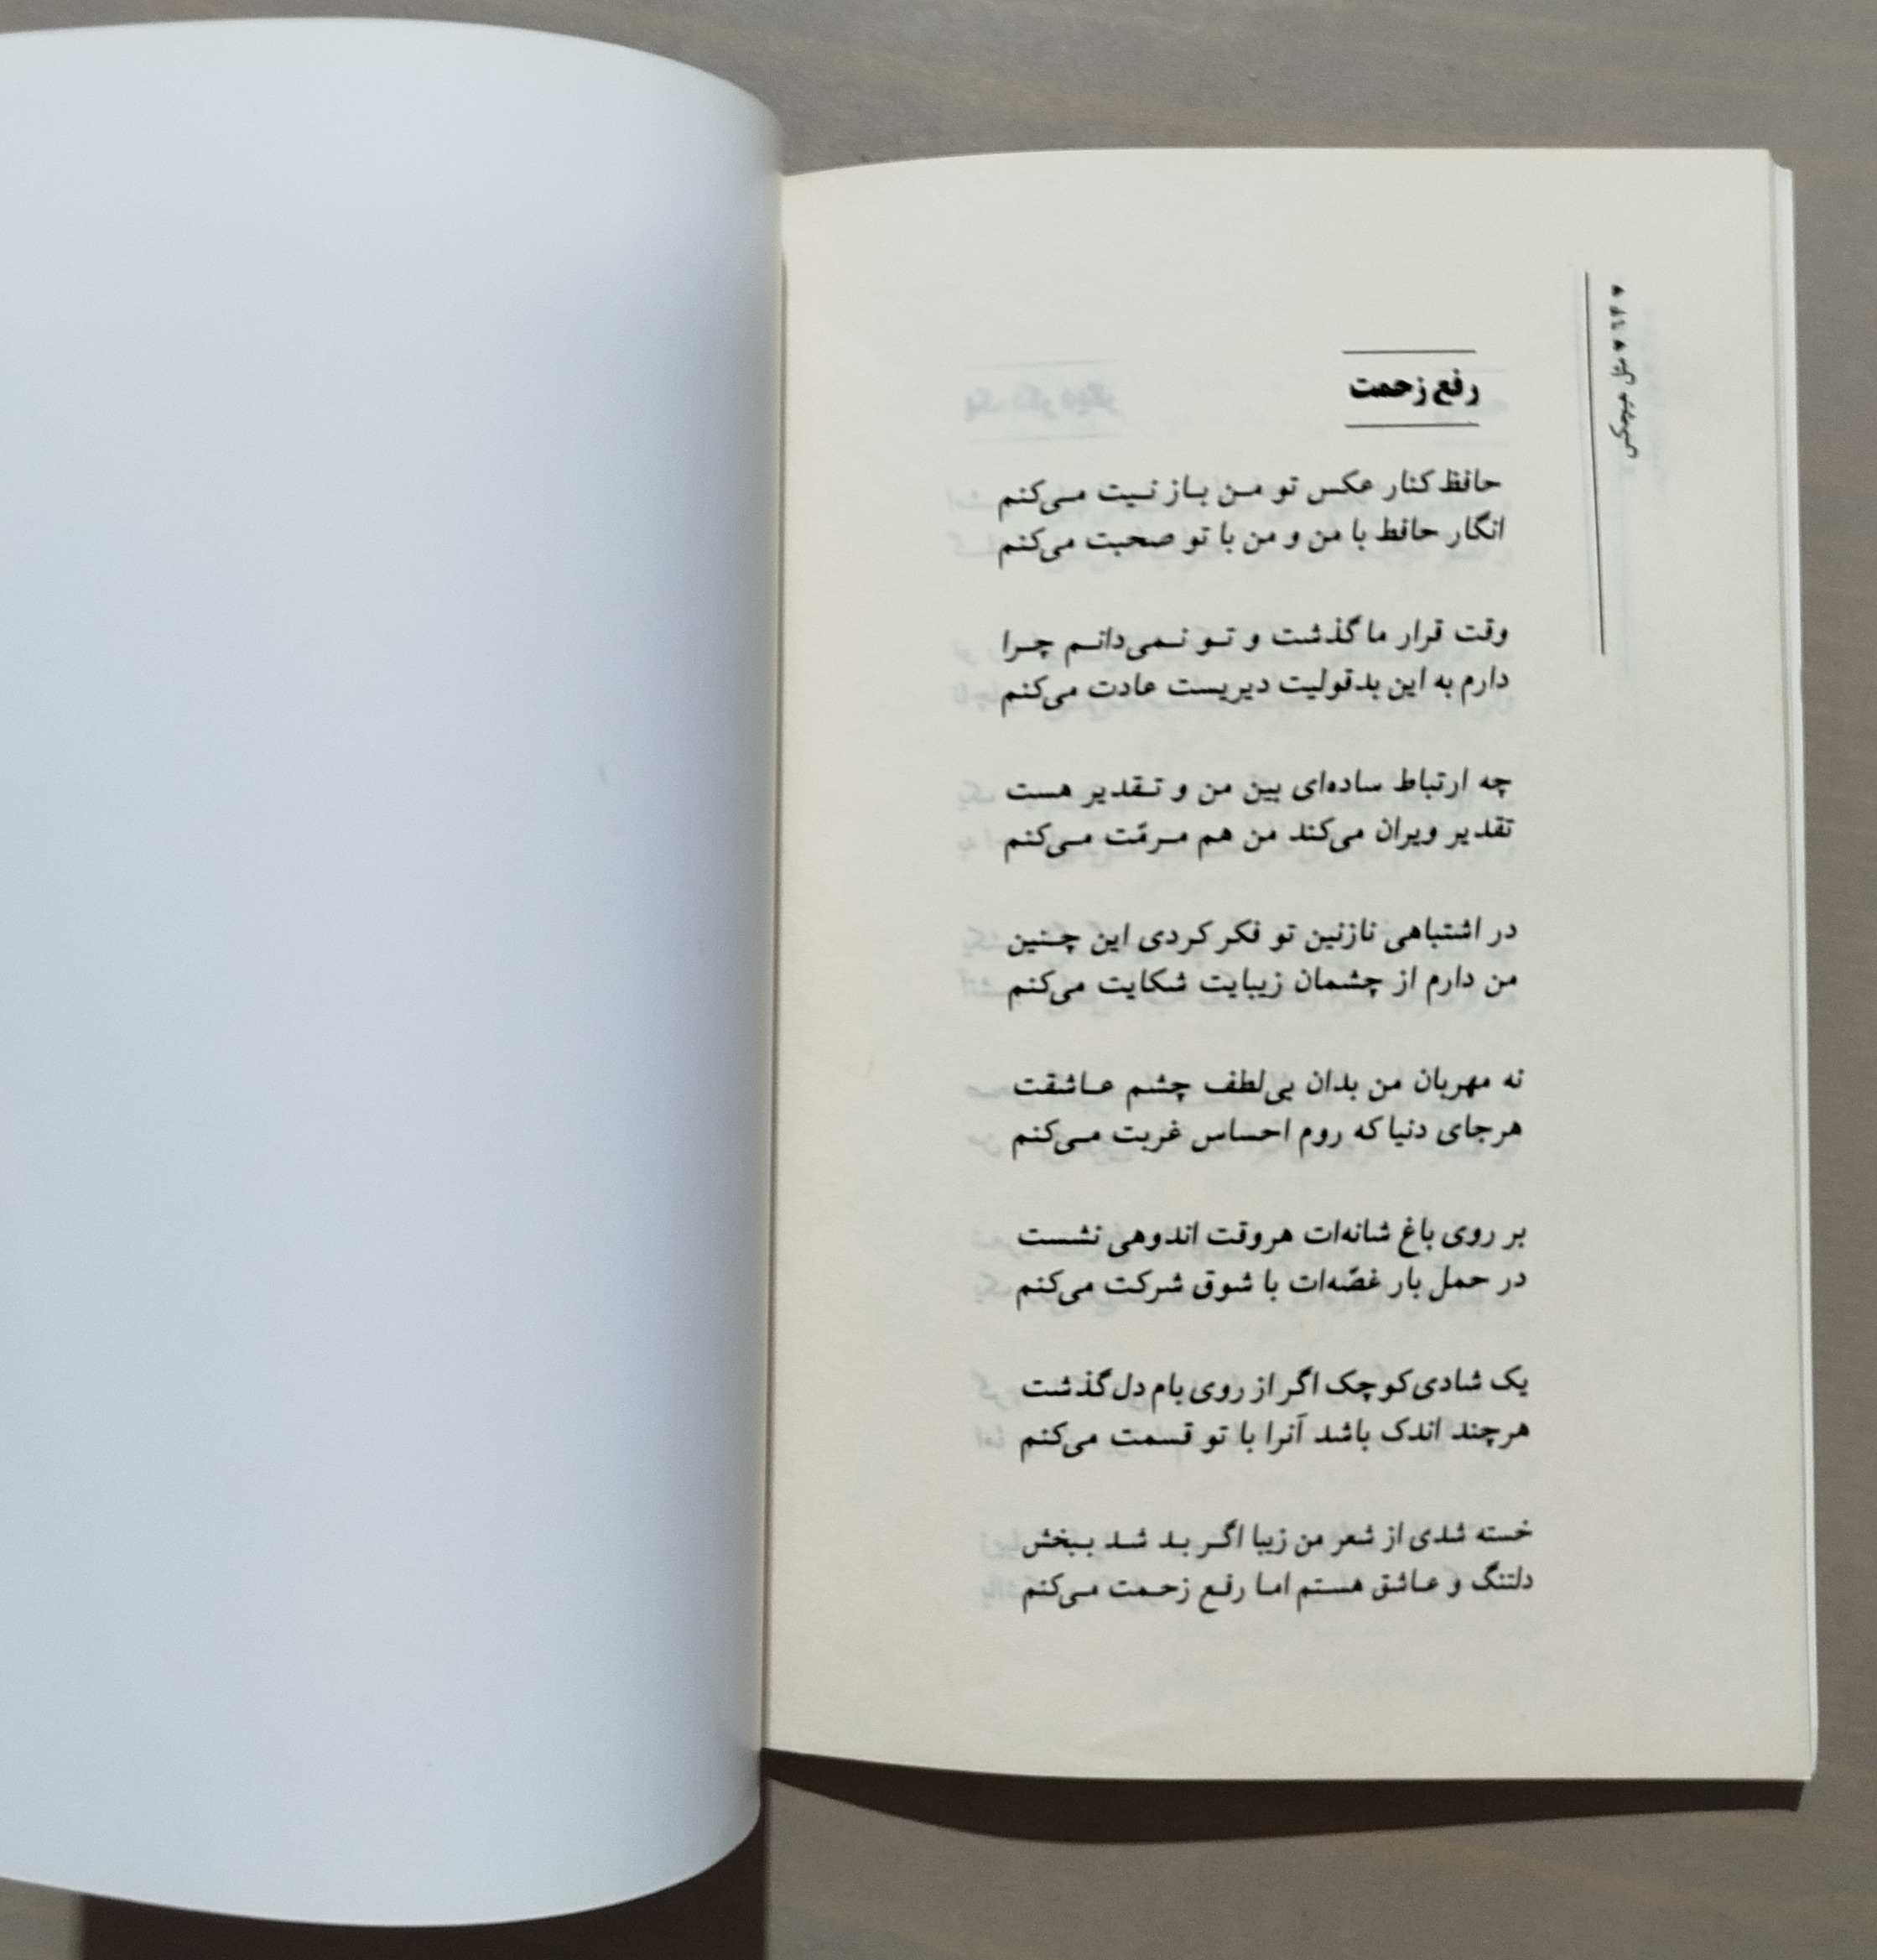 ♥ ۶۴ ♥ مثل هیچکس
رفع زحمت
حافظ کنار عکس تو من باز نیت می‌کنم
انگار حافط با من و من با تو صحبت می‌کنم
وقت قرار ما گذشت و تو نمی‌دانم چرا
دارم به این بدقولیت دیریست عادت می‌کنم
چه ارتباط ساده‌ای بین من و تقدیر هست
تقدیر ویران می‌کند من هم مرمّت می‌کنم
در اشتباهی نازنین تو فکر کردی این چنین
من دارم از چشمان زیبایت شکایت می‌کنم
نه مهربان من بدان بی‌لطف چشم عاشقت
هرجای دنیا که روم احساس غربت می‌کنم
بر روی باغ شانه‌ات هروقت اندوهی نشست
در حمل بار غصّه‌ات با شوق شرکت می‌کنم
یک شادی کوچک اگر از روی بام دل گذشت
هرچند اندک باشد آنرا با تو قسمت می‌کنم
خسته شدی از شعر من زیبا اگر بد شد ببخش
دلتنگ و عاشق هستم اما رفع زحمت می‌کنم